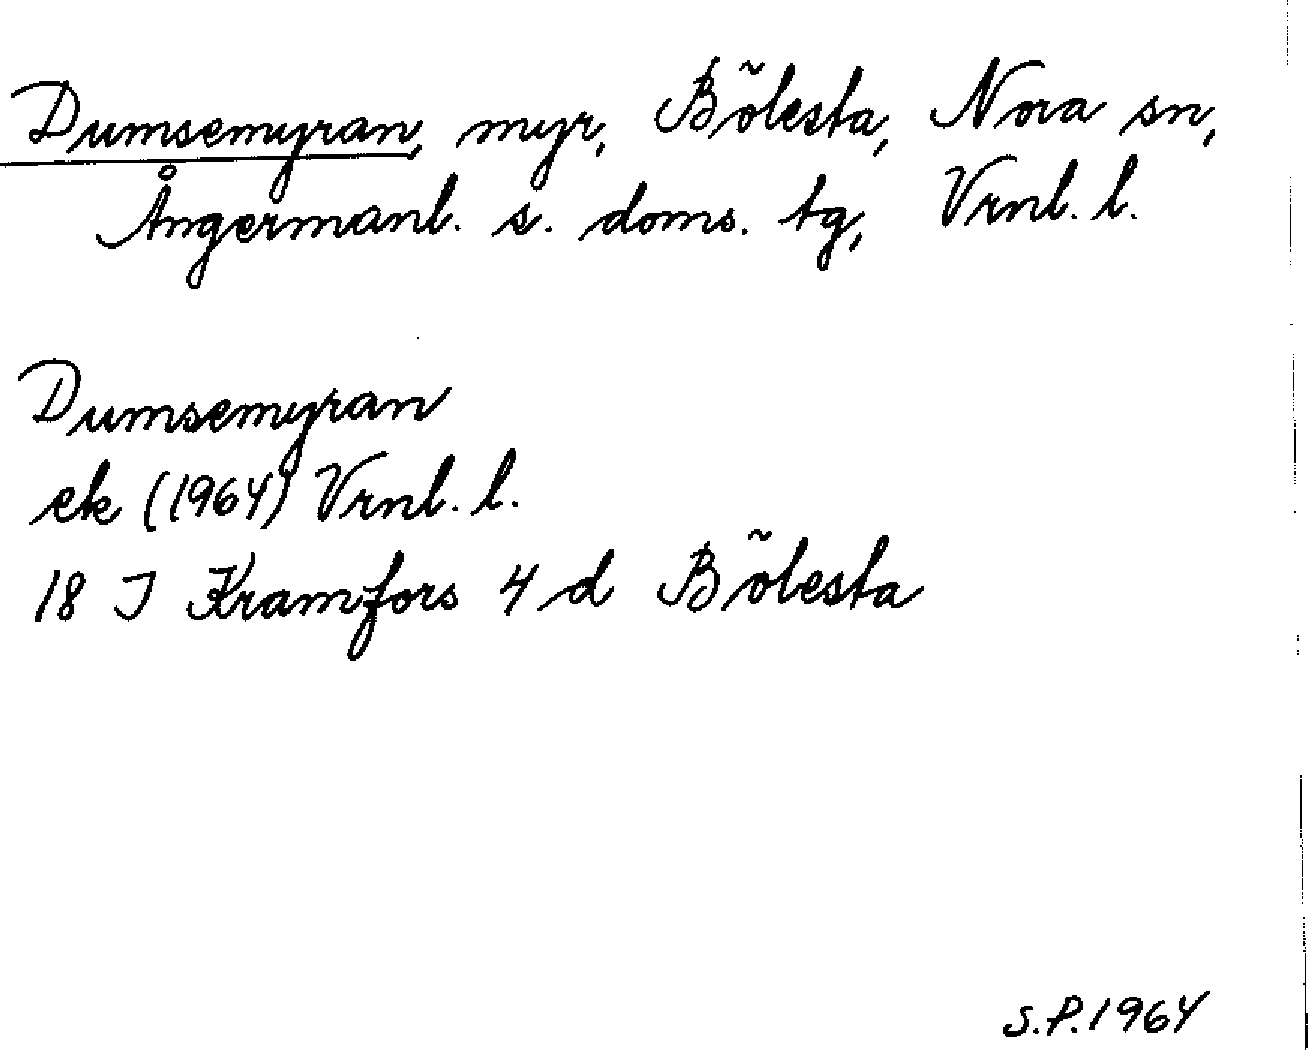 Dumsemyran, myr, Bölesta, Nora sn,
Ångermanl. s. doms. tg, Vrnl. l.
Dumsemyran
ek (1964) Vrnl. l.
18 J Kramfors 4 d Bölesta
S.P. 1964